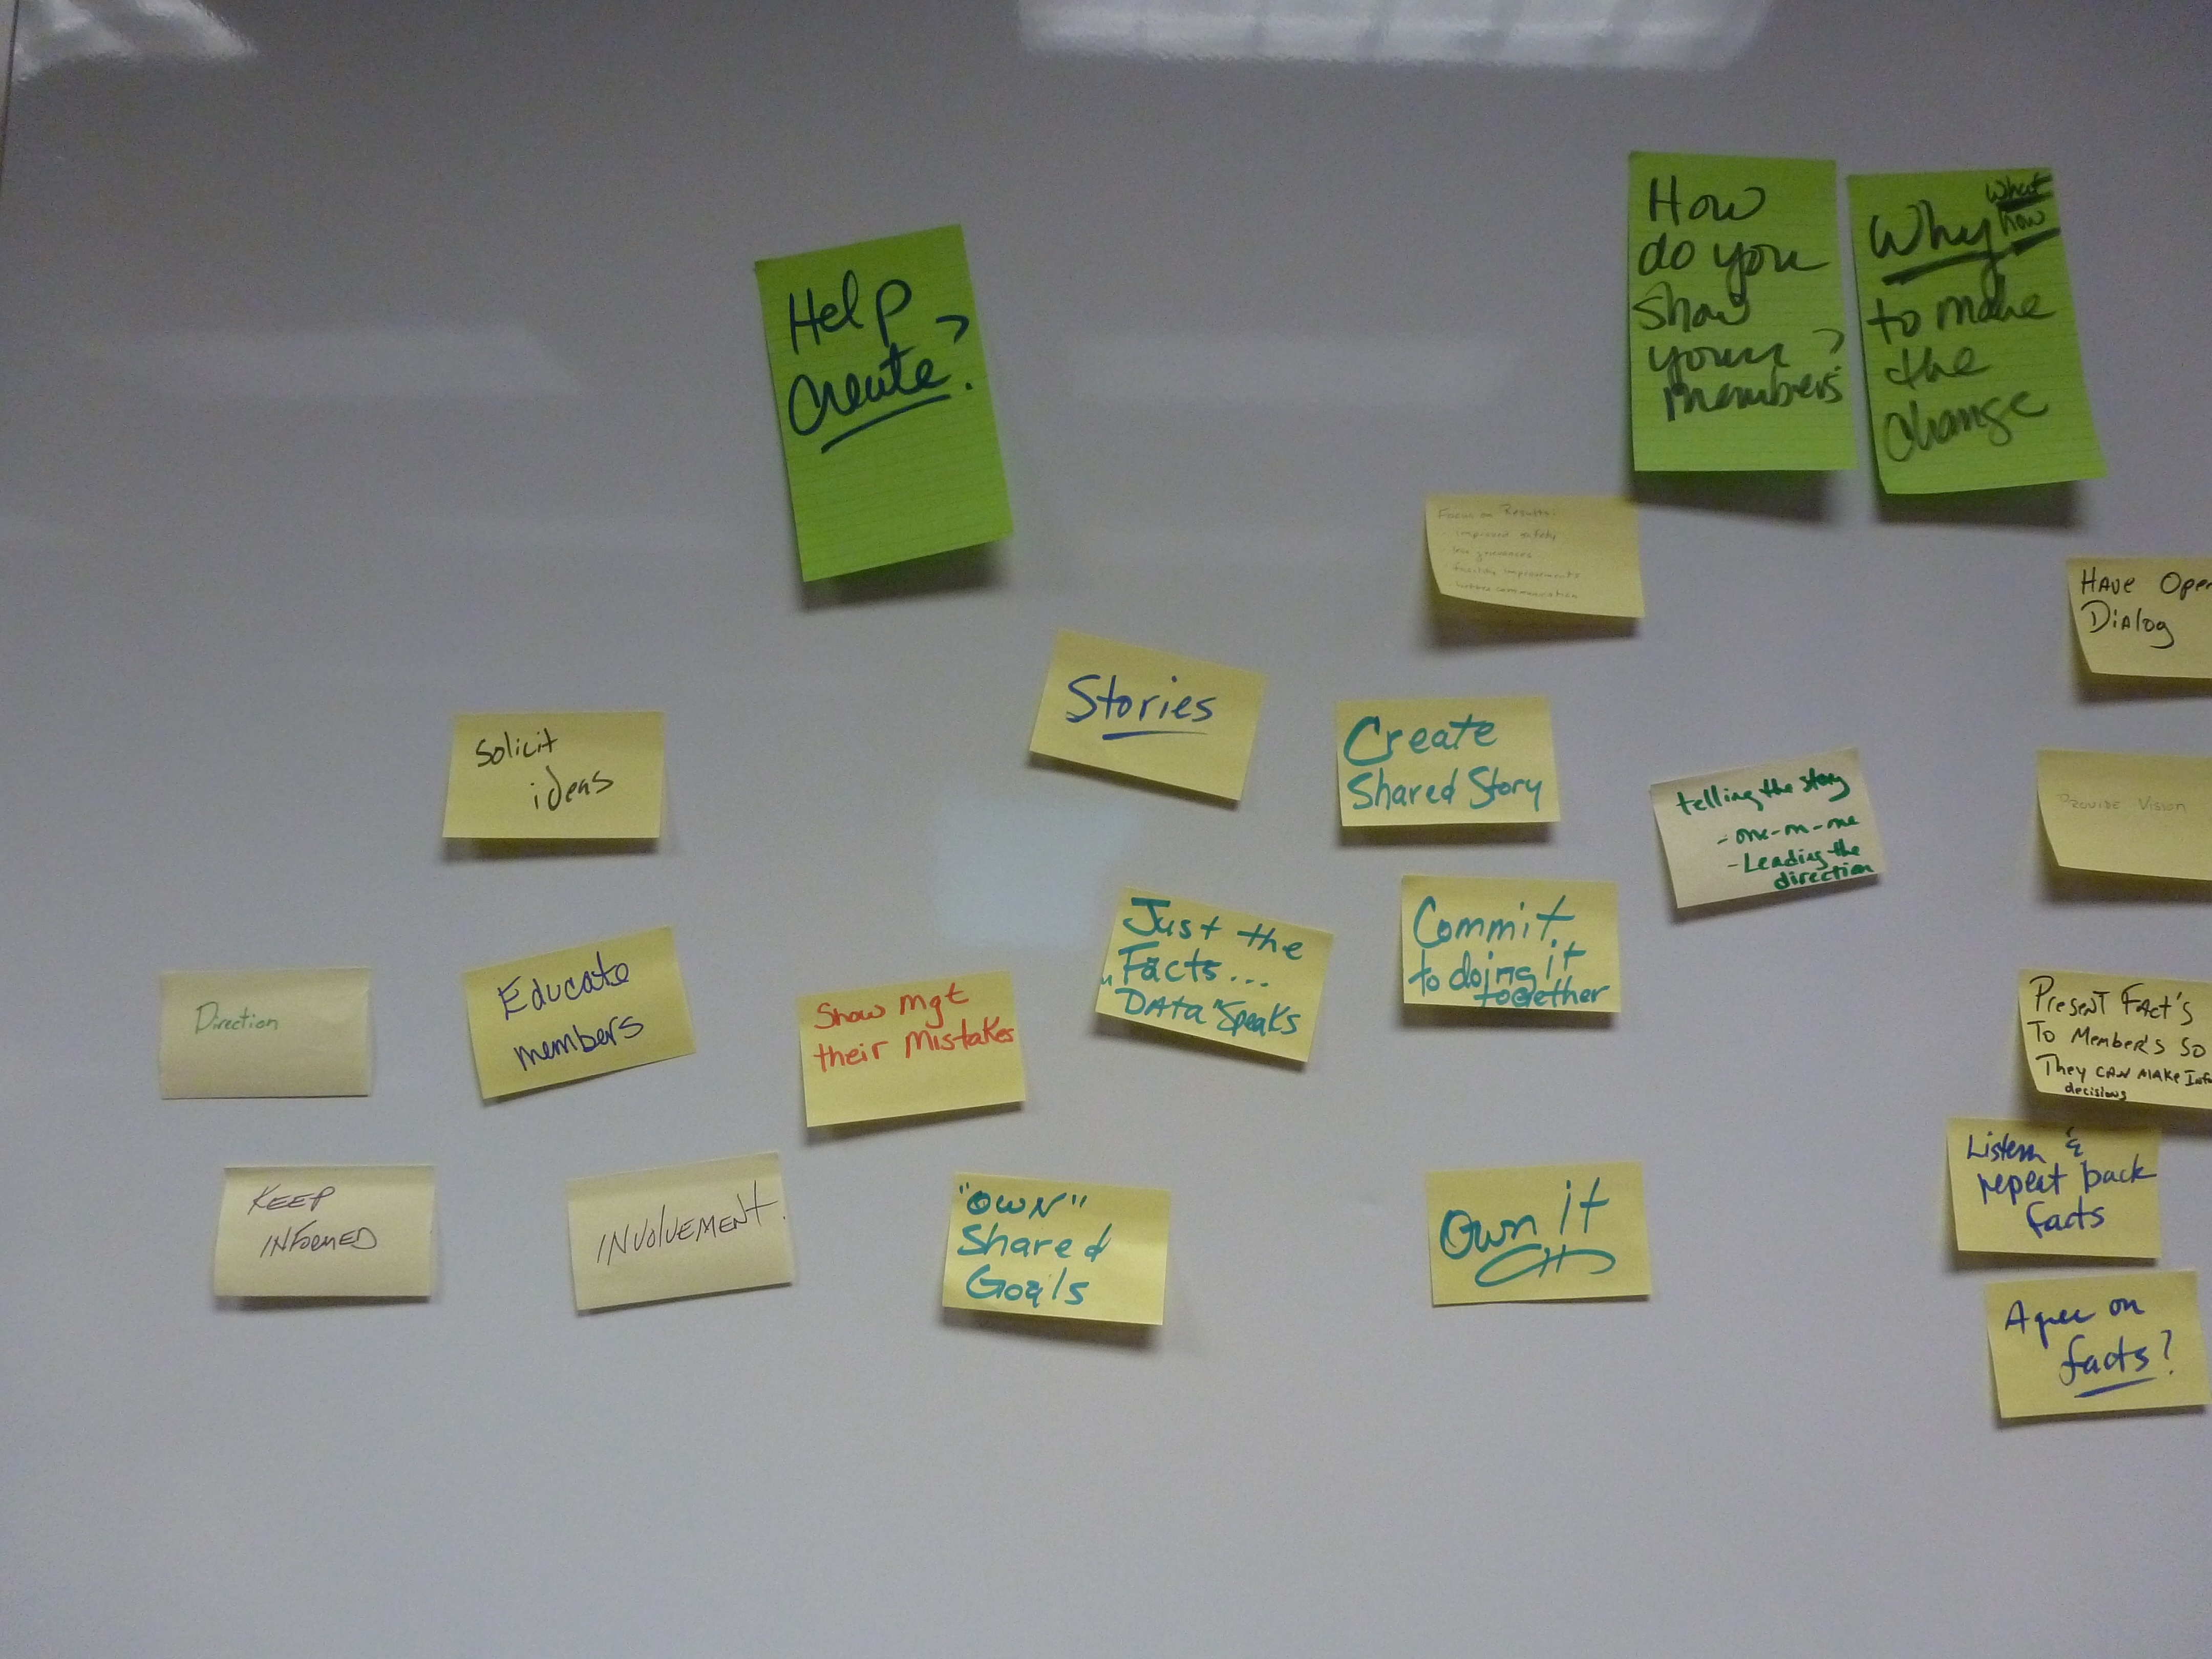 Help
Create?
How
do you
show
your
members?
what
Why how
to make
the
change
Focus on Results:
- improved safety
- less grievances
- facility improvements
- better communication
Have Open
Dialog
Stories
Create
Shared Story
Solicit
ideas
telling the story
- one-on-one
- Leading the
direction
Provide Vision
Just the
Facts...
"Data" Speaks
Commit
to doing it
together
Direction
Educate
members
Show Mgt
their Mistakes
Present Fact's
To Member's So
They can make
decisions
Keep
Informed
Involvement.
"Own"
Shared
Goals
Own it
Listen &
repeat back
facts
Agree on
facts?